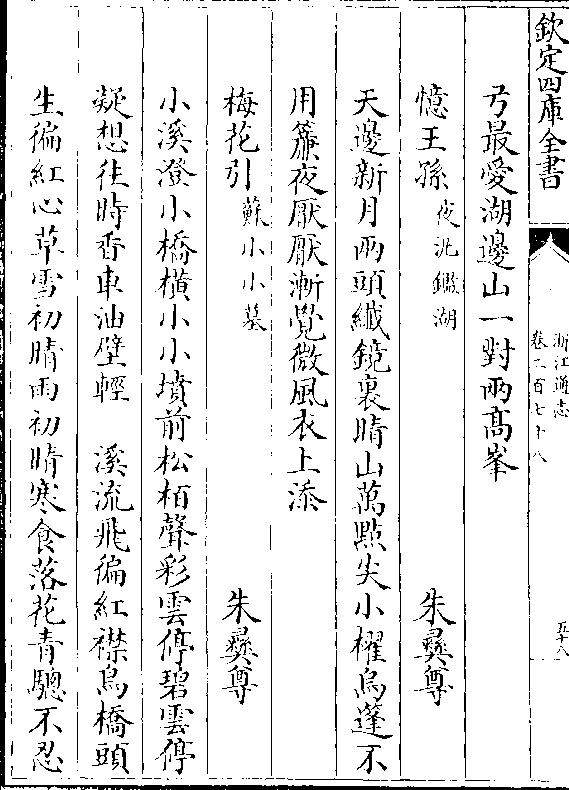 欽定四庫全書
浙江通志
卷二百七十八
五十八
弓最愛湖邊山一對兩髙峯
憶王孫 夜泛鑑湖 朱彝尊
天邊新月兩頭纎鏡裏晴山萬點尖小櫂烏篷不
用簾夜厭厭漸覺微風衣上添
梅花引 蘇小小墓 朱彝尊
小溪澄小橋横小小墳前松栢聲彩雲停碧雲停
凝想往時香車油壁輕 溪流飛徧紅襟鳥橋頭
生徧紅心草雪初晴雨初晴寒食落花青驄不忍